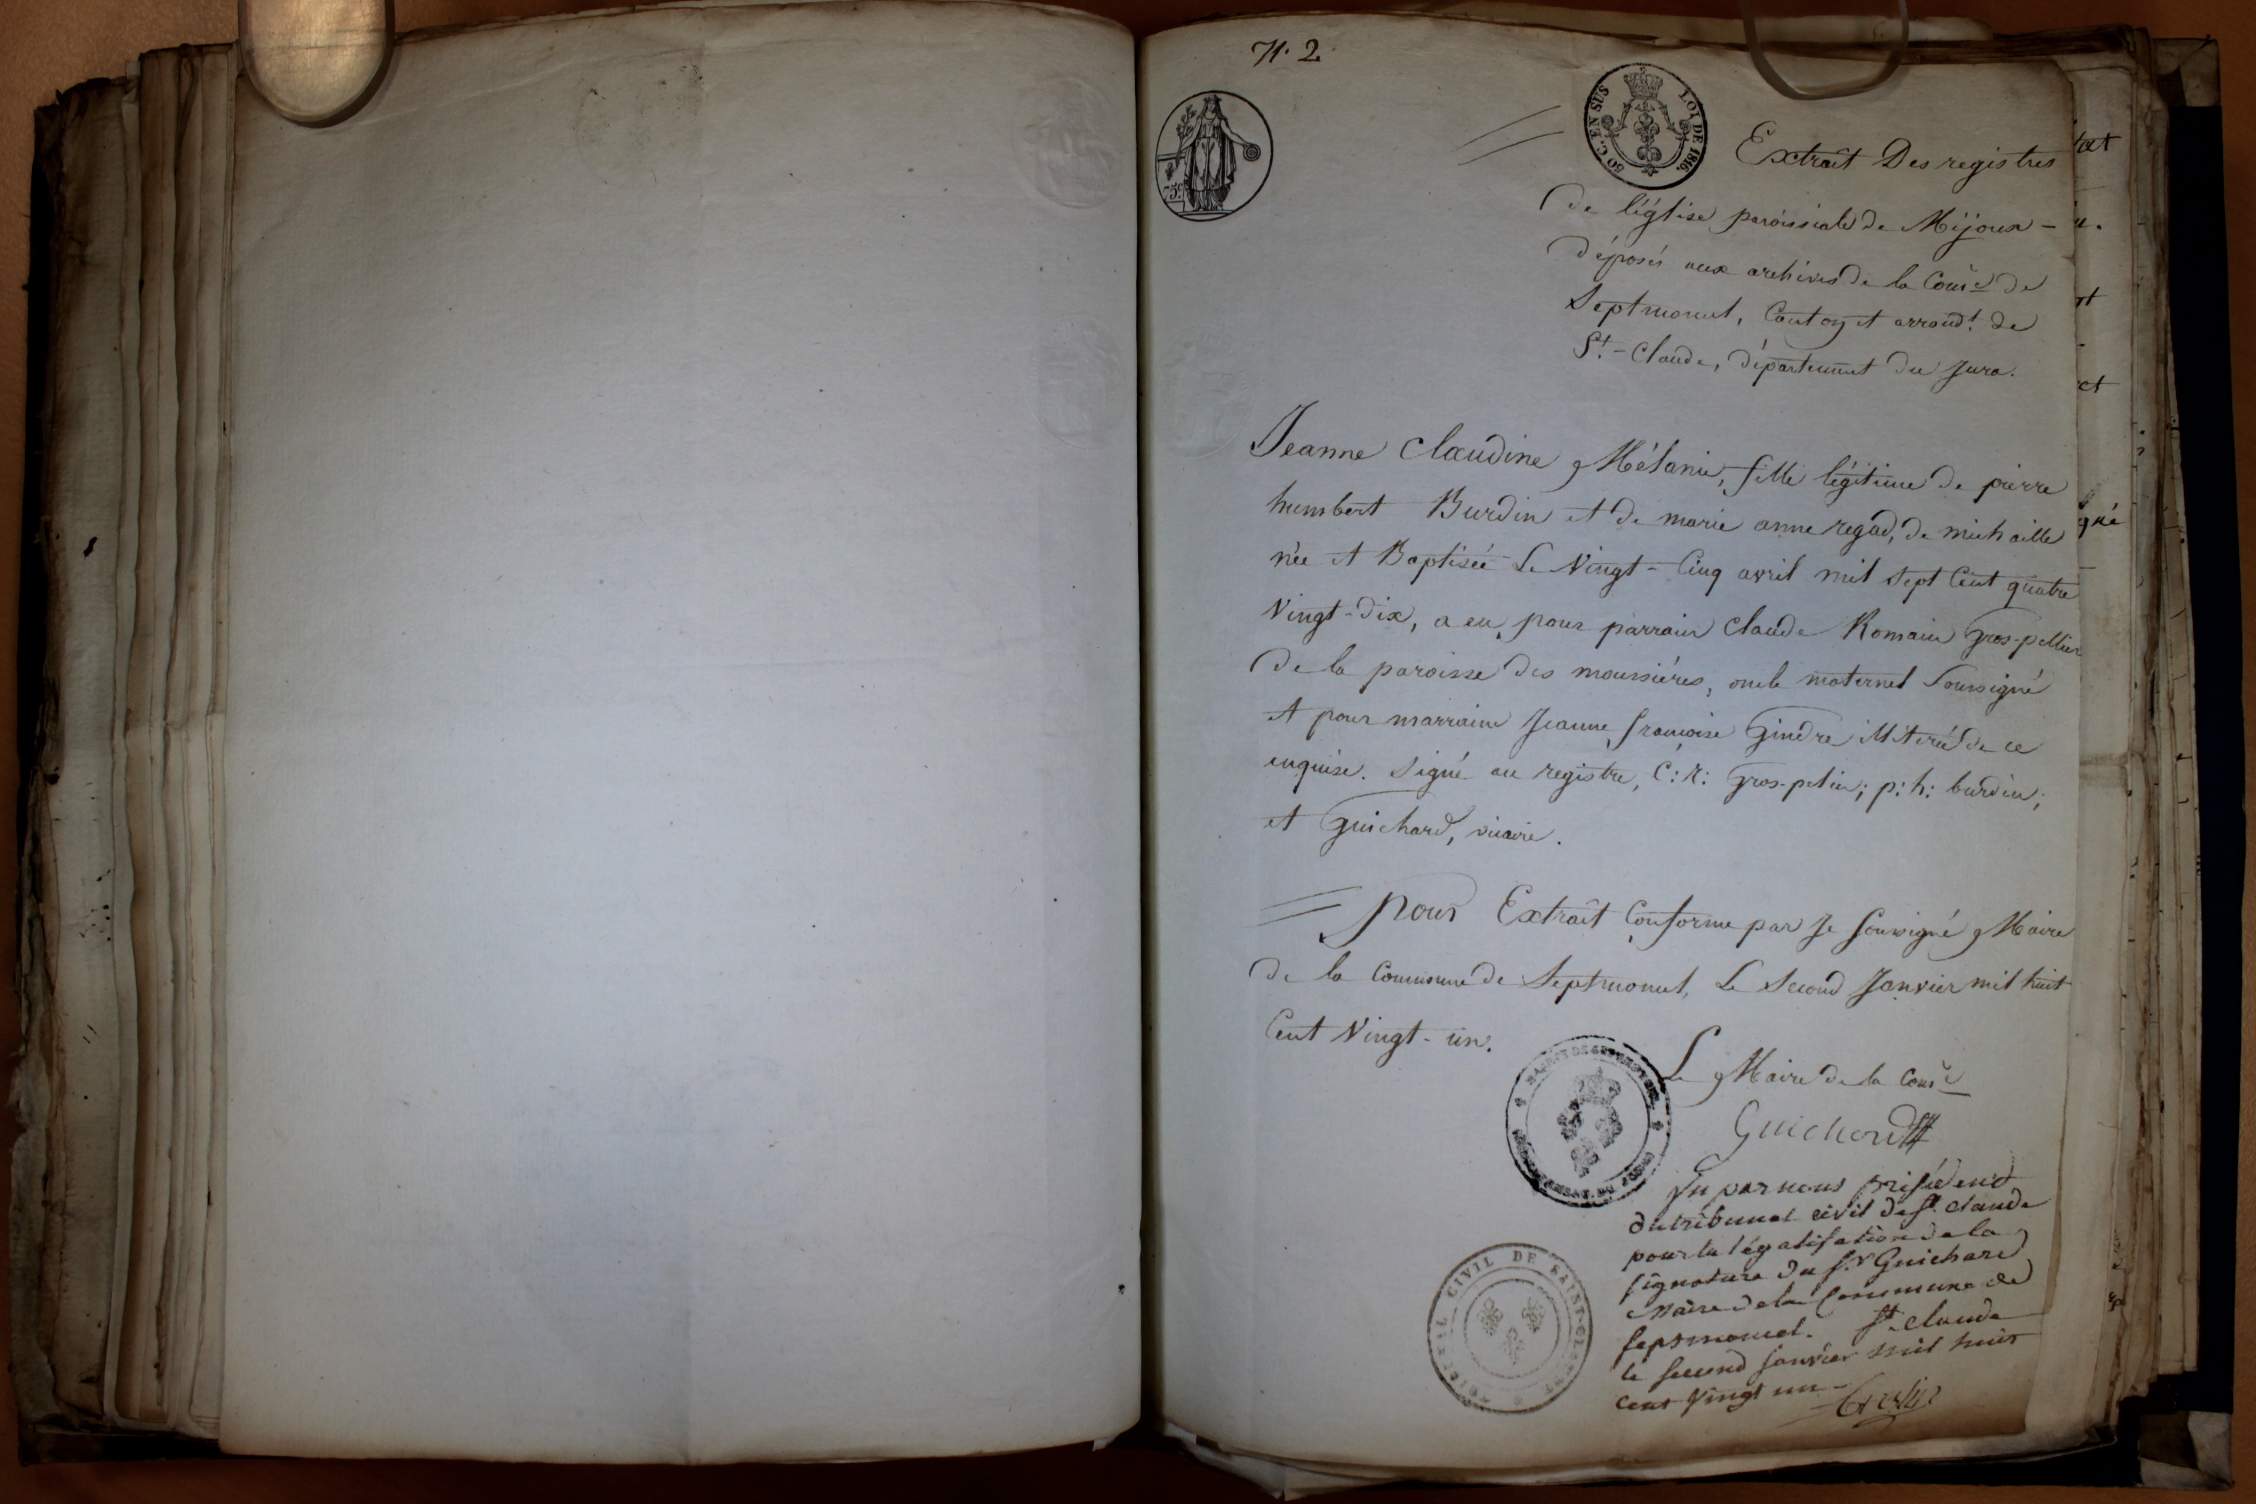 N. 2
50 C. EN SUS LOI DE 1816.
75 c
Extrait Des registres
de l'église paroissiale de Mijoux -
déposés aux archives de la Comne de
Septmoncel, Canton et arrondt de
St - Claude, département du Jura.
Jeanne Claudine Mélanie, fille légitime de pierre
humbert Burdin et de marie anne regad, de michaille
née et Baptisée Le Vingt - Cinq avril mil sept Cent quatre
Vingt - dix, a eu, pour parrain Claude Romain Gros-pellier
de la paroisse des moussières, oncle maternel Soussigné
et pour marraine Jeanne françoise Gindre illiteré de ce
enquise. Signé au registre, C: R: Gros-pelier; p: h: burdin;
et Guichard, vicaire.
pour Extrait Conforme par Je soussigné Maire
de la Commune de Septmoncel, Le Second Janvier mil huit
Cent Vingt - un.
Le Maire de la Comne
Guichard
MAIRIE DE SEPTMONCEL
DÉPARTEMENT DU JURA
Vu par nous président
du tribunal civil de St claude
pour la légalisation de la
signature du Sr Guichard
Maire de la Commune de
septmoncel. St claude
le second janvier mil huit
cent vingt un -
TRIBUNAL CIVIL DE SAINT-CLAUDE